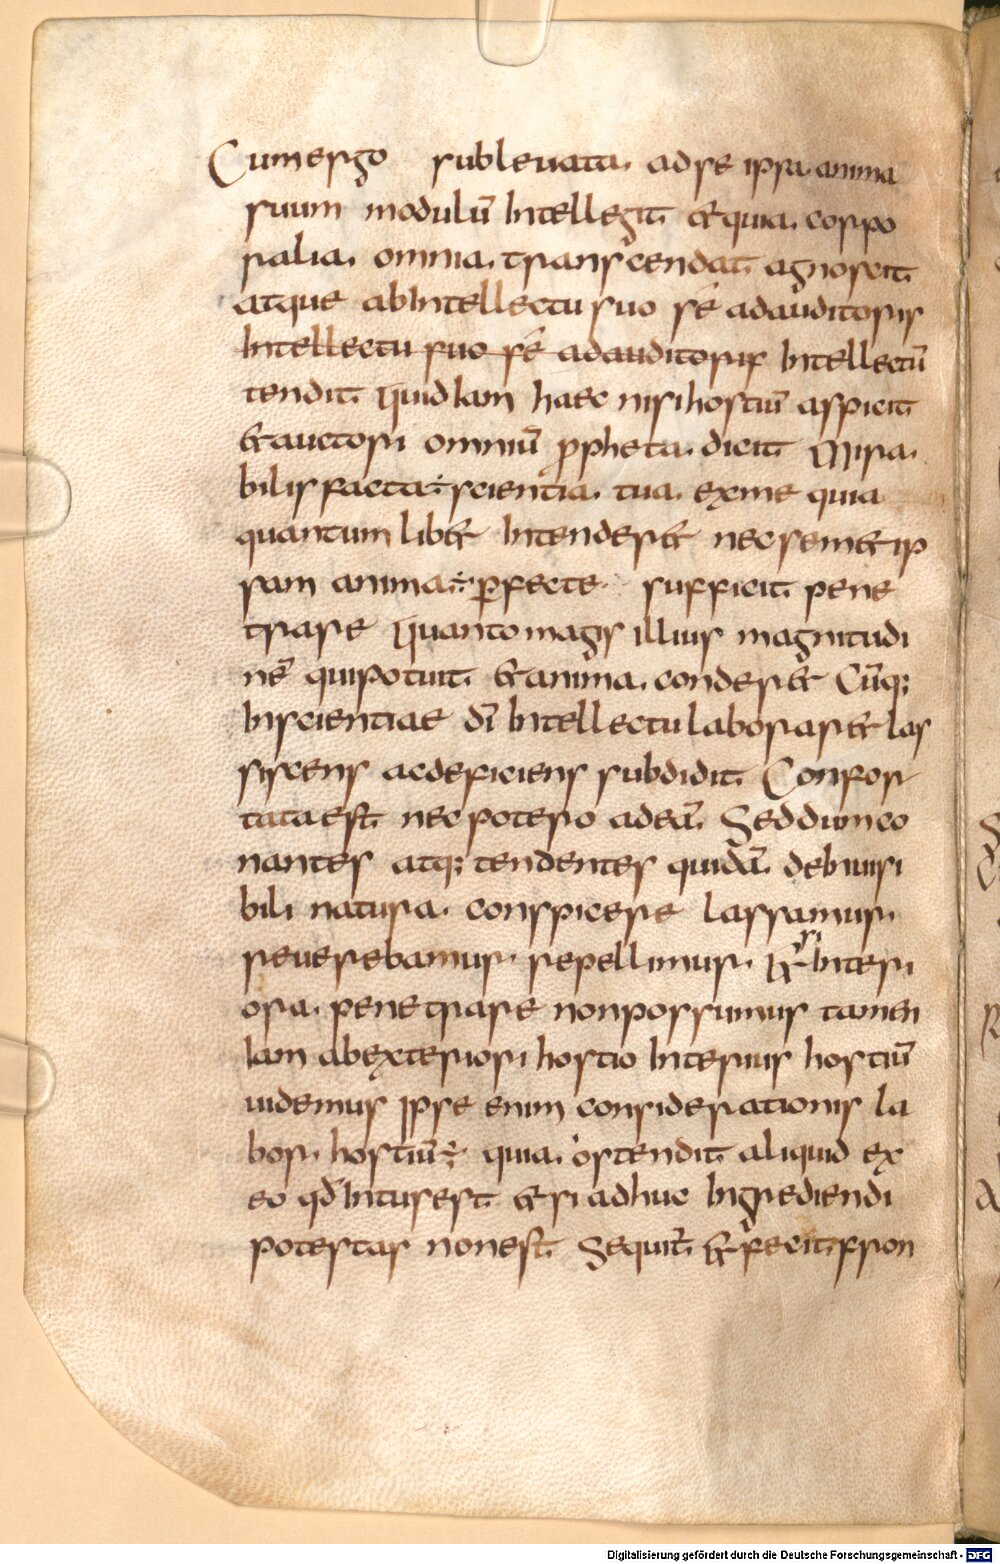 Cum ergo subleuata ad se ipsa anima
suum modulū Intellegit & quia corpo
ralia omnia transcendat agnoscit
atque ab Intellectu suo sē ad auditoris
Intellectu suo sē ad auditoris Intellectū
tendit Quid Iam haec nisi hostiū aspicit
& auctori omniū ꝓpheta dicit Mira
bilis facta÷scientia tua ex me quia
quantum lib& Intender& nec sem&ip
sam anima÷ꝑfecte sufficit pene
trare Quanto magis illius magnitudi
nē qui potuit & anima conder& Cūq;
In scientiae dī Intellectu laborar& las
siscens ac deficiens subdidit Confor
tata est nec potero ad eā Sed dum co
nantes atq; tendentes quidā de Inuisi
bili natura conspicere lassamur
reuerebamur repellimur &si Interi
ora penetrare non possumus tamen
Iam ab exteriori hostio Interius hostiū
uidemus Ipse enim considerationis la
bor hostiū÷ quia ostendit aliquid ex
eo qd̄ Intus est & si adhuc Ingrediendi
potestas non est Sequit̄ & fecit fron
Digitalisierung gefördert durch die Deutsche Forschungsgemeinschaft - DFG